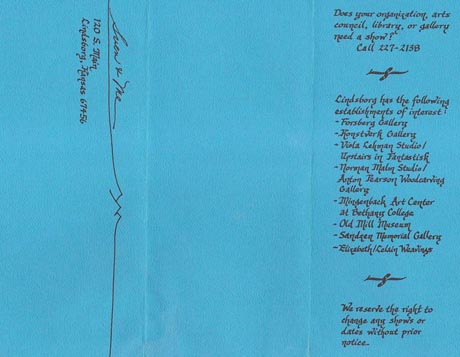 Does your organization, arts
council, library, or gallery
need a show?
Call 227-2138
Lindsborg has the following
establishments of interest:
-Forsberg Gallery
-Konstverk Gallery
-Viola Lehman Studio/
Upstairs in Fantastisk
-Norman Malm Studio/
Anton Pearson Woodcarving
Gallery
-Mingenback Art Center
at Bethany College
-Old Mill Museum
-Sandzen Memorial Gallery
-Elizabeth/Lolain Weavings
We reserve the right to
change any shows or
dates without prior
notice.
120 S. Main
Lindsborg, Kansas 67456